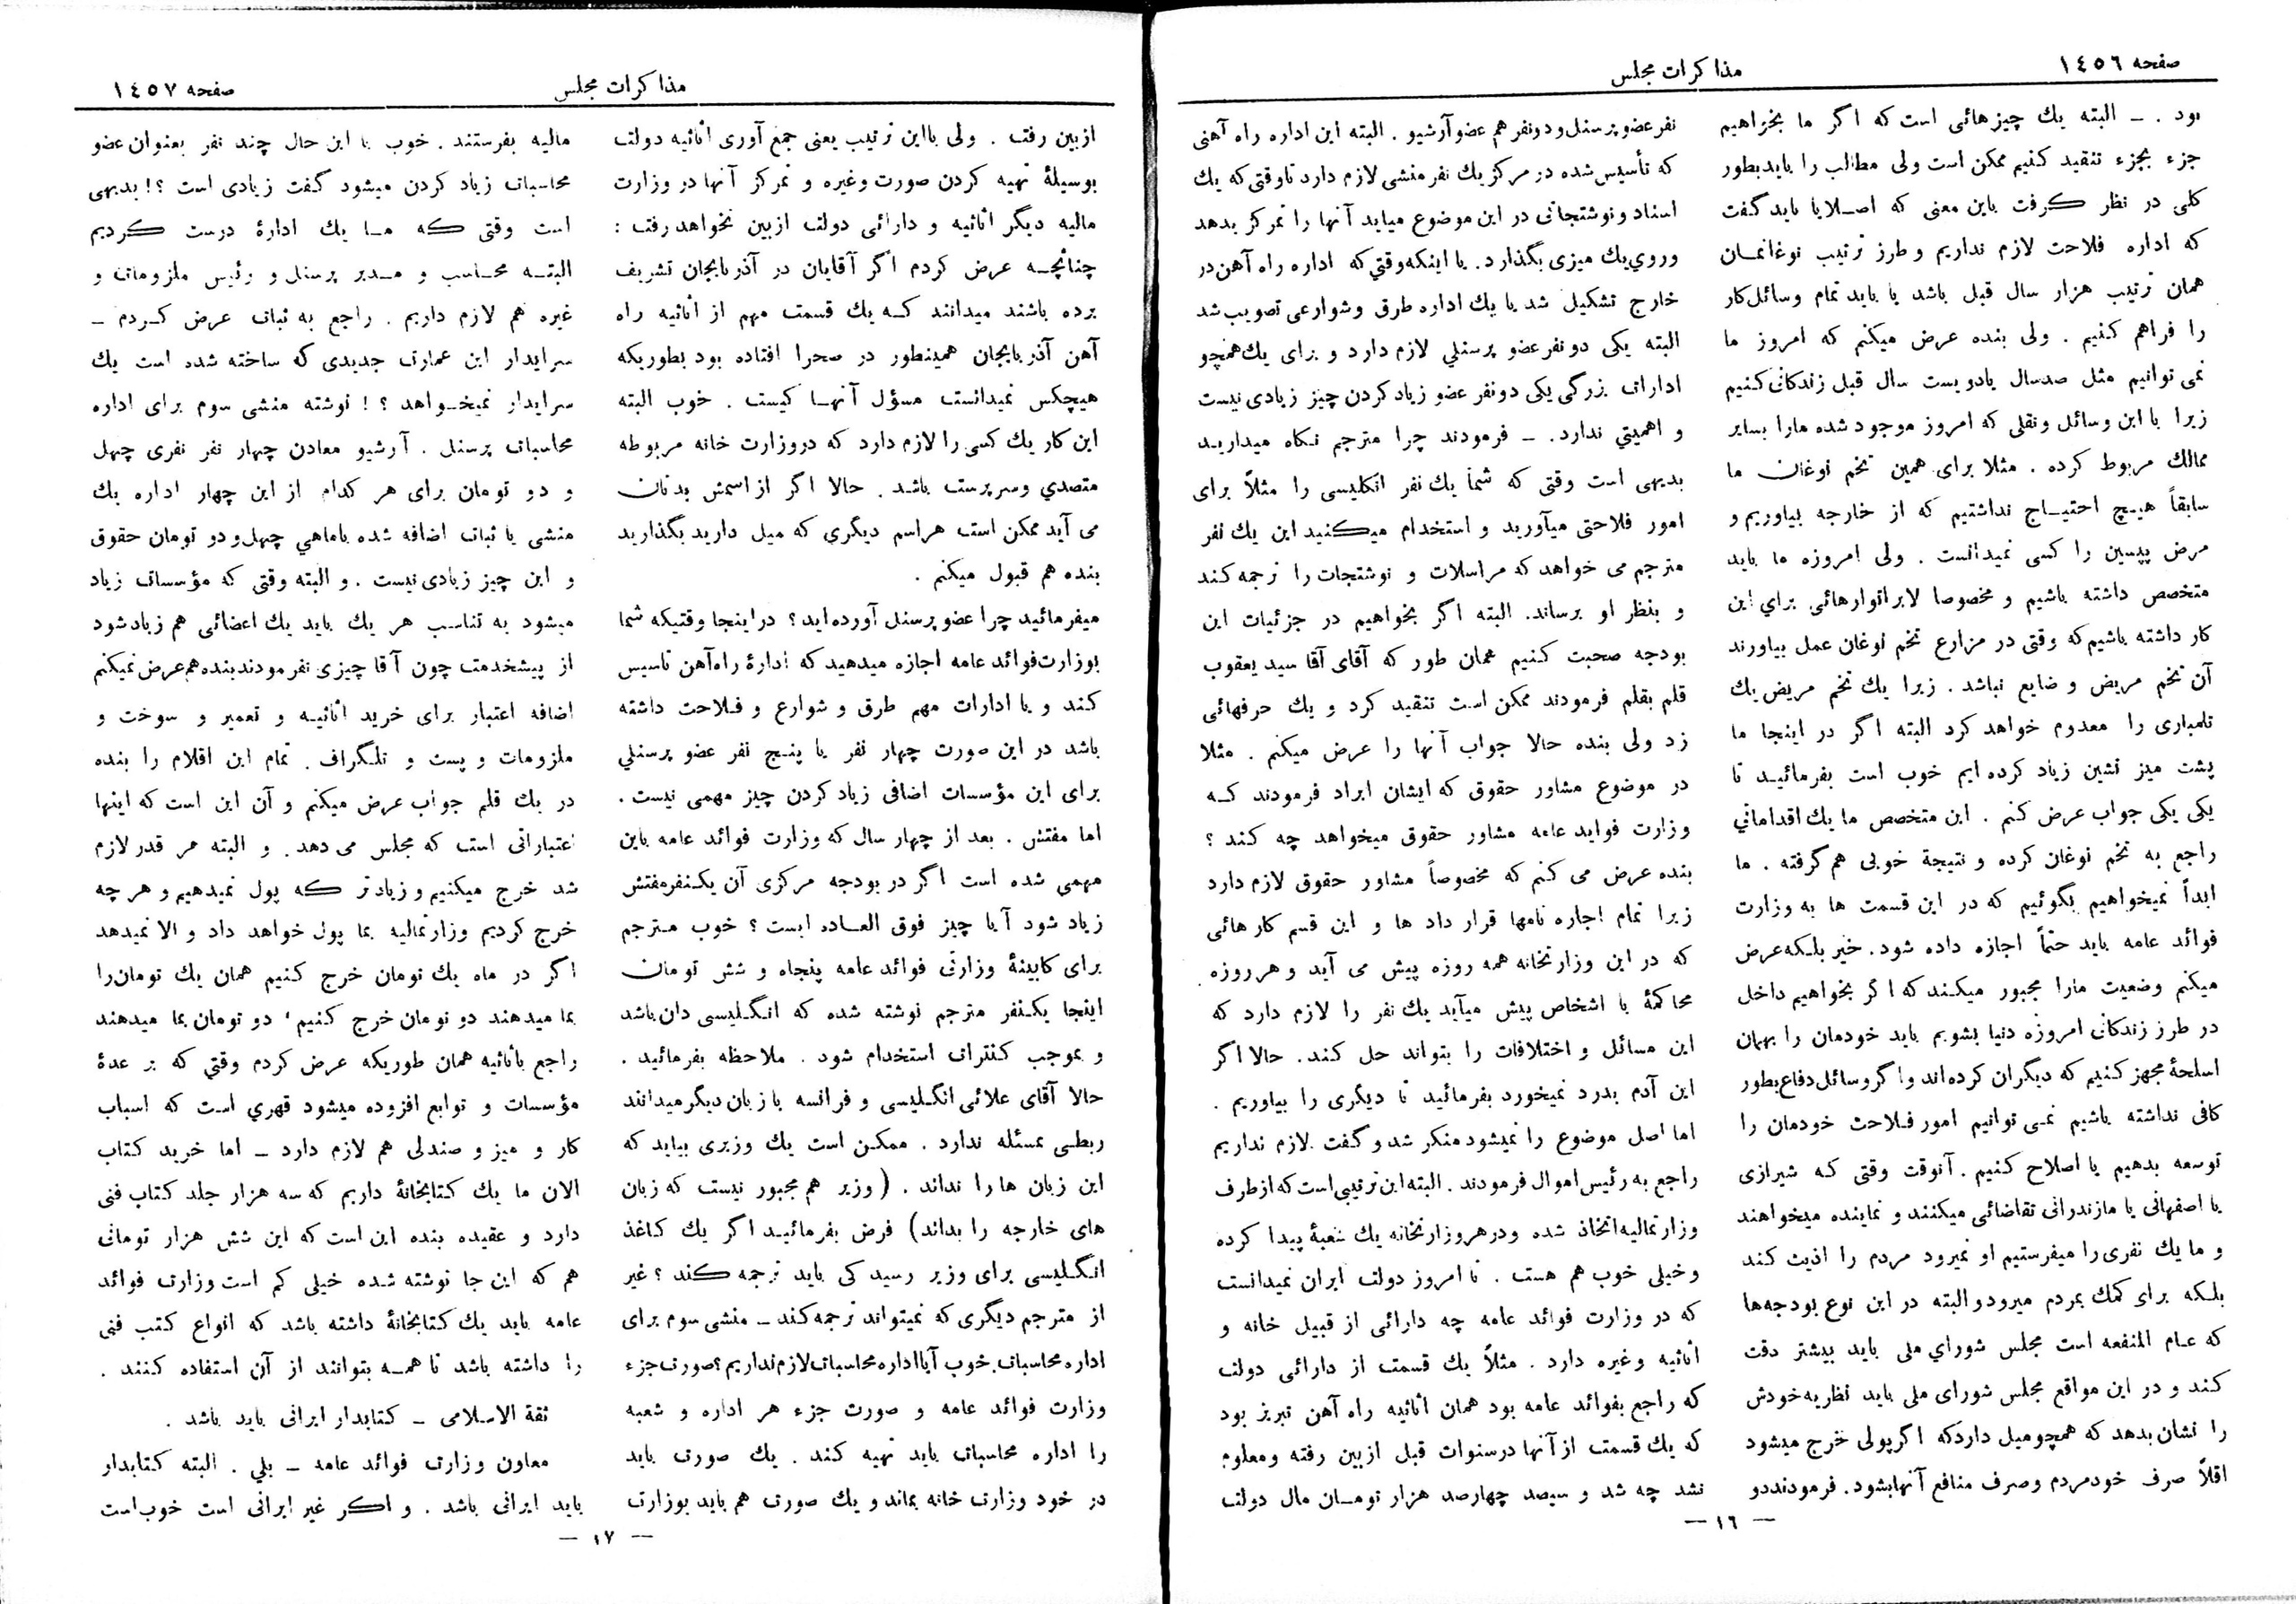 صفحه ١٤٥٦
مذاکرات مجلس
بود . ـ البته یك چیزهائی است که اگر ما بخواهیم
جزء بجزء تنقید کنیم ممکن است ولی مطالب را باید بطور
کلی در نظر گرفت باین معنی که اصلا یا باید گفت
که اداره فلاحت لازم نداریم و طرز ترتیب نوغانمان
همان ترتیب هزار سال قبل باشد یا باید تمام وسائل کار
را فراهم کنیم . ولی بنده عرض میکنم که امروز ما
نمی توانیم مثل صدسال یا دویست سال قبل زندگانی کنیم
زیرا با این وسائل و نقلی که امروز موجود شده مارا بسایر
ممالك مربوط کرده . مثلا برای همین تخم نوغان ما
سابقاً هیچ احتیاج نداشتیم که از خارجه بیاوریم و
مرض پپسین را کسی نمیدانست . ولی امروزه ما باید
متخصص داشته باشیم و مخصوصا لابراتوارهائی براي این
کار داشته باشیم که وقتی در مزارع تخم نوغان عمل بیاورند
آن تخم مریض و ضایع نباشد . زیرا یك تخم مریض یك
تلمباری را معدوم خواهد کرد البته اگر در اینجا ما
پشت میز نشین زیاد کرده ایم خوب است بفرمائید تا
یکی یکی جواب عرض کنم . این متخصص ما یك اقداماتي
راجع به تخم نوغان کرده و نتیجة خوبی هم گرفته . ما
ابداً نمیخواهیم بگوئیم که در این قسمت ها به وزارت
فوائد عامه باید حتماً اجازه داده شود . خیر بلکه عرض
میکنم وضعیت مارا مجبور میکند که اگر بخواهیم داخل
در طرز زندکانی امروزه دنیا بشویم باید خودمان را بهمان
اسلحهٔ مجهز کنیم که دیگران کرده اند و اگر وسائل دفاع بطور
کافی نداشته باشیم نمی توانیم امور فلاحت خودمان را
توسعه بدهیم یا اصلاح کنیم . آنوقت وقتی که شیرازی
یا اصفهانی یا مازندرانی تقاضائی میکنند و نماینده میخواهند
و ما یك نفری را میفرستیم او نمیرود مردم را اذیت کند
بلکه برای کمك بمردم میرود و البته در این نوع بودجه ها
که عام المنفعه است مجلس شوراي ملی باید بیشتر دقت
کند و در این مواقع مجلس شورای ملی باید نظریه خودش
را نشان بدهد که همچو میل دارد که اگر پولی خرج میشود
اقلاً صرف خود مردم و صرف منافع آنها بشود . فرمودند دو
نفر عضو پرسنل و دو نفر هم عضو آرشیو . البته این اداره راه آهنی
که تأسیس شده در مرکز یك نفر منشی لازم دارد تا وقتی که یك
اسناد و نوشتجاتی در این موضوع میاید آنها را تمرکز بدهد
و روي یك میزی بگذارد . یا اینکه وقتي که اداره راه آهن در
خارج تشکیل شد یا یك اداره طرق و شوارعی تصویب شد
البته یکی دو نفر عضو پرسنلي لازم دارد و برای یك همچو
ادارات بزرگی یکی دو نفر عضو زیاد کردن چیز زیادی نیست
و اهمیتي ندارد . ـ فرمودند چرا مترجم نگاه میدارید
بدیهی است وقتی که شما یك نفر انگلیسی را مثلاً برای
امور فلاحتی میآورید و استخدام میکنید این یك نفر
مترجم می خواهد که مراسلات و نوشتجات را ترجمه کند
و بنظر او برساند . البته اگر بخواهیم در جزئیات این
بودجه صحبت کنیم همان طور که آقای آقا سید یعقوب
قلم بقلم فرمودند ممکن است تنقید کرد و یك حرفهائی
زد ولی بنده حالا جواب آنها را عرض میکنم . مثلا
در موضوع مشاور حقوق که ایشان ایراد فرمودند که
وزارت فواید عامه مشاور حقوق میخواهد چه کند ؟
بنده عرض می کنم که مخصوصاً مشاور حقوق لازم دارد
زیرا تمام اجاره نامها قرار داد ها و این قسم کارهائی
که در این وزارتخانه همه روزه پیش می آید و هر روزه
محاکمهٔ با اشخاص پیش میآید یك نفر را لازم دارد که
این مسائل و اختلافات را بتواند حل کند . حالا اگر
این آدم بدرد نمیخورد بفرمائید تا دیگری را بیاوریم .
اما اصل موضوع را نمیشود منکر شد و گفت لازم نداریم
راجع به رئیس اموال فرمودند . البته این ترتیبی است که از طرف
وزارتمالیه اتخاذ شده و در هر وزارتخانه یك شعبهٔ پیدا کرده
و خیلی خوب هم هست . تا امروز دولت ایران نمیدانست
که در وزارت فوائد عامه چه دارائی از قبیل خانه و
اثاثیه و غیره دارد . مثلاً یك قسمت از دارائی دولت
که راجع بفوائد عامه بود همان اثاثیه راه آهن تبریز بود
که یك قسمت از آنها در سنوات قبل از بین رفته و معلوم
نشد چه شد و سیصد چهارصد هزار تومان مال دولت
ـ ١٦ ـ
مذاکرات مجلس
صفحه ١٤٥٧
از بین رفت . ولی با این ترتیب یعنی جمع آوری اثاثیه دولت
بوسیلهٔ تهیه کردن صورت و غیره و تمرکز آنها در وزارت
مالیه دیگر اثاثیه و دارائی دولت از بین نخواهد رفت :
چنانچه عرض کردم اگر آقایان در آذربایجان تشریف
برده باشند میدانند که یك قسمت مهم از اثاثیه راه
آهن آذربایجان همینطور در صحرا افتاده بود بطوریکه
هیچکس نمیدانست مسؤل آنها کیست . خوب البته
این کار یك کسی را لازم دارد که در وزارت خانه مربوطه
متصدي و سرپرست باشد . حالا اگر از اسمش بدتان
می آید ممکن است هر اسم دیگري که میل دارید بگذارید
بنده هم قبول میکنم .
میفرمائید چرا عضو پرسنل آورده اید ؟ در اینجا وقتیکه شما
بوزارت فوائد عامه اجازه میدهید که ادارهٔ راه آهن تاسیس
کند و یا ادارات مهم طرق و شوارع و فلاحت داشته
باشد در این صورت چهار نفر یا پنج نفر عضو پرسنلي
برای این مؤسسات اضافی زیاد کردن چیز مهمی نیست .
اما مفتش . بعد از چهار سال که وزارت فوائد عامه باین
مهمی شده است اگر در بودجه مرکزی آن یکنفر مفتش
زیاد شود آیا چیز فوق العاده ایست ؟ خوب مترجم
برای کابینهٔ وزارتی فوائد عامه پنجاه و شش تومان
اینجا یکنفر مترجم نوشته شده که انگلیسی دان باشد
و بموجب کنترات استخدام شود . ملاحظه بفرمائید .
حالا آقای علائی انگلیسی و فرانسه یا زبان دیگر میدانند
ربطی بمسئله ندارد . ممکن است یك وزیری بیاید که
این زبان ها را نداند . ( وزیر هم مجبور نیست که زبان
های خارجه را بداند) فرض بفرمائید اگر یك کاغذ
انگلیسی برای وزیر رسید کی باید ترجمه کند ؟ غیر
از مترجم دیگری که نمیتواند ترجمه کند ـ منشی سوم برای
اداره محاسبات . خوب آیا اداره محاسبات لازم نداریم ؟ صورت جزء
وزارت فوائد عامه و صورت جزء هر اداره و شعبه
را اداره محاسبات باید تهیه کند . یك صورت باید
در خود وزارت خانه بماند و یك صورت هم باید بوزارت
مالیه بفرستند . خوب با این حال چند نفر بعنوان عضو
محاسبات زیاد کردن میشود گفت زیادی است ؟! بدیهی
است وقتی که ما یك ادارهٔ درست کردیم
البته محاسب و مدیر پرسنل و رئیس ملزومات و
غیره هم لازم داریم . راجع به ثبات عرض کردم ـ
سرایدار این عمارت جدیدی که ساخته شده است یك
سرایدار نمیخواهد ؟ ! نوشته منشی سوم برای اداره
محاسبات پرسنل . آرشیو معادن چهار نفر نفری چهل
و دو تومان برای هر کدام از این چهار اداره یك
منشی یا ثبات اضافه شده باماهي چهل و دو تومان حقوق
و این چیز زیادی نیست . و البته وقتی که مؤسسات زیاد
میشود به تناسب هر یك باید یك اعضائی هم زیاد شود
از پیشخدمت چون آقا چیزی نفرمودند بنده هم عرض نمیکنم
اضافه اعتبار برای خرید اثاثیه و تعمیر و سوخت و
ملزومات و پست و تلگراف . تمام این اقلام را بنده
در یك قلم جواب عرض میکنم و آن این است که اینها
اعتباراتی است که مجلس می دهد . و البته هر قدر لازم
شد خرج میکنیم و زیادتر که پول نمیدهیم و هر چه
خرج کردیم وزارتمالیه بما پول خواهد داد و الا نمیدهد
اگر در ماه یك تومان خرج کنیم همان یك تومان را
بما میدهند دو تومان خرج کنیم ، دو تومان بما میدهند
راجع بأثاثیه همان طوریکه عرض کردم وقتي که بر عدهٔ
مؤسسات و توابع افزوده میشود قهري است که اسباب
کار و میز و صندلی هم لازم دارد ـ اما خرید کتاب
الان ما یك کتابخانهٔ داریم که سه هزار جلد کتاب فنی
دارد و عقیده بنده این است که این شش هزار تومانی
هم که این جا نوشته شده خیلی کم است وزارت فوائد
عامه باید یك کتابخانهٔ داشته باشد که انواع کتب فنی
را داشته باشد تا همه بتوانند از آن استفاده کنند .
ثقة الاسلامی ـ کتابدار ایرانی باید باشد .
معاون وزارت فوائد عامه ـ بلي . البته کتابدار
باید ایرانی باشد . و اگر غیر ایرانی است خوب است
ـ ١٧ ـ